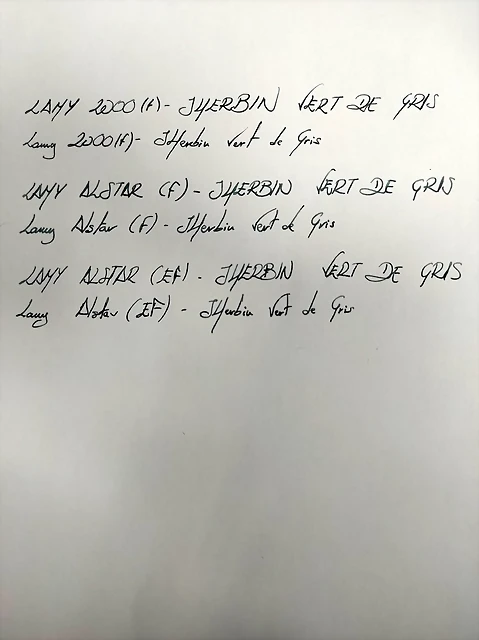 LAMY 2000 (f) - JHERBIN VERT DE GRIS
Lamy 2000 (f) - JHerbin Vert de Gris
LAMY ALSTAR (F) - JHERBIN VERT DE GRIS
Lamy Alstar (F) - JHerbin Vert de Gris
LAMY ALSTAR (EF) - JHERBIN VERT DE GRIS
Lamy Alstar (EF) - JHerbin Vert de Gris